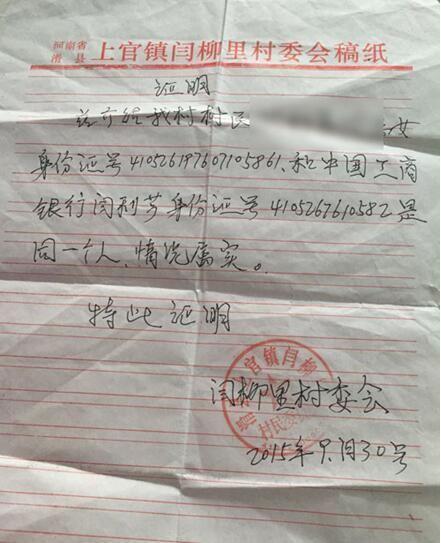 河南省
滑县
上官镇闫柳里村委会稿纸
证明
兹介绍我村村民 女
身份证号410526197607105861、和中国工商
银行闫利芳身份证号4105267610582是
同一个人、情况属实。
特此证明
官镇闫柳
村民委
闫柳里村委会
2015年9月30号